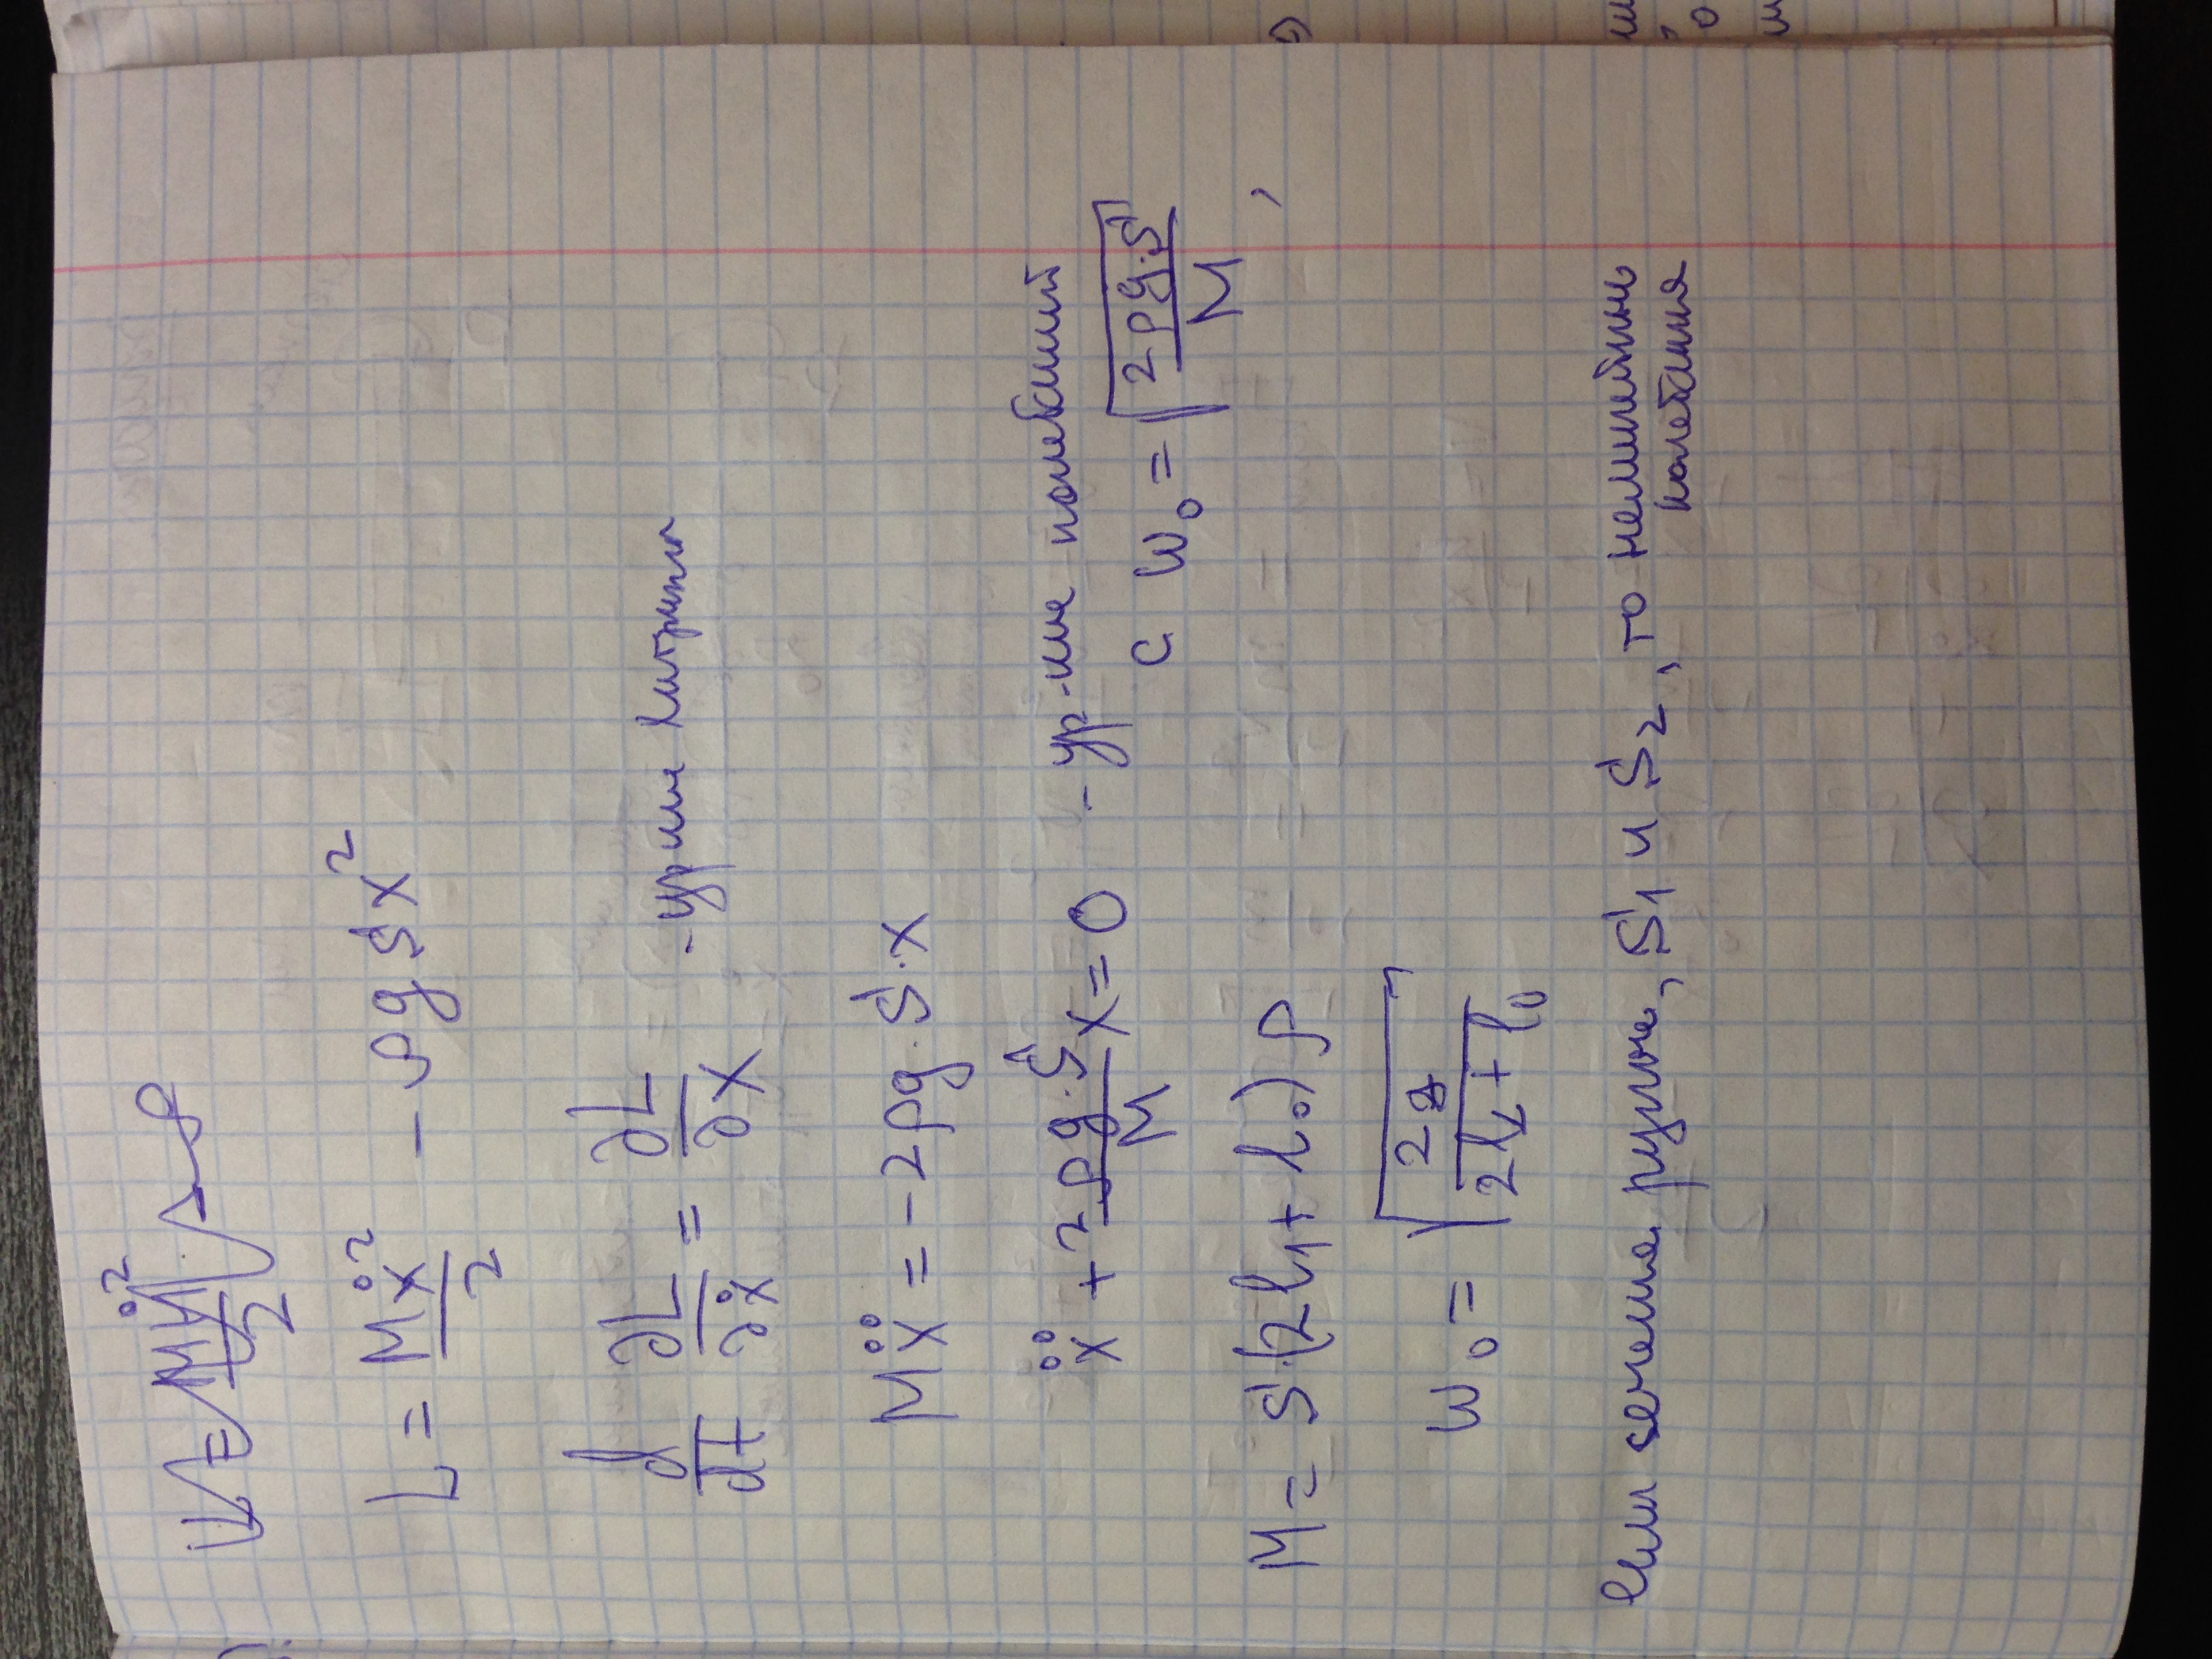 L = Mẋ²/2 − ρgSx²
d/dt ∂L/∂ẋ = ∂L/∂x - ур-ие Лагранжа
Mẍ = −2ρg·S·x
ẍ + 2ρg·S/M x = 0 - ур-ие колебаний
с ω₀ = √(2ρg·S/M) ,
M = S·(2l₁ + l₀)ρ
ω₀ = √(2g/(2l₁ + l₀))
Если сечения разные, S₁ и S₂, то нелинейные
колебания